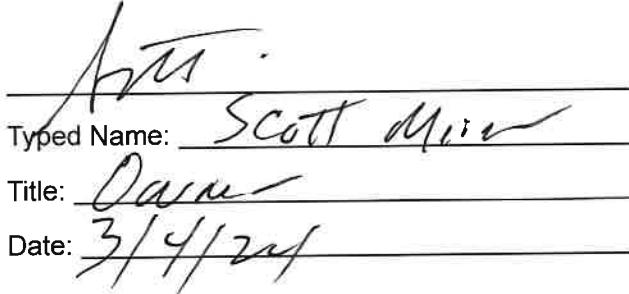 Typed Name: Scott
Title: Owner
Date: 3/4/24